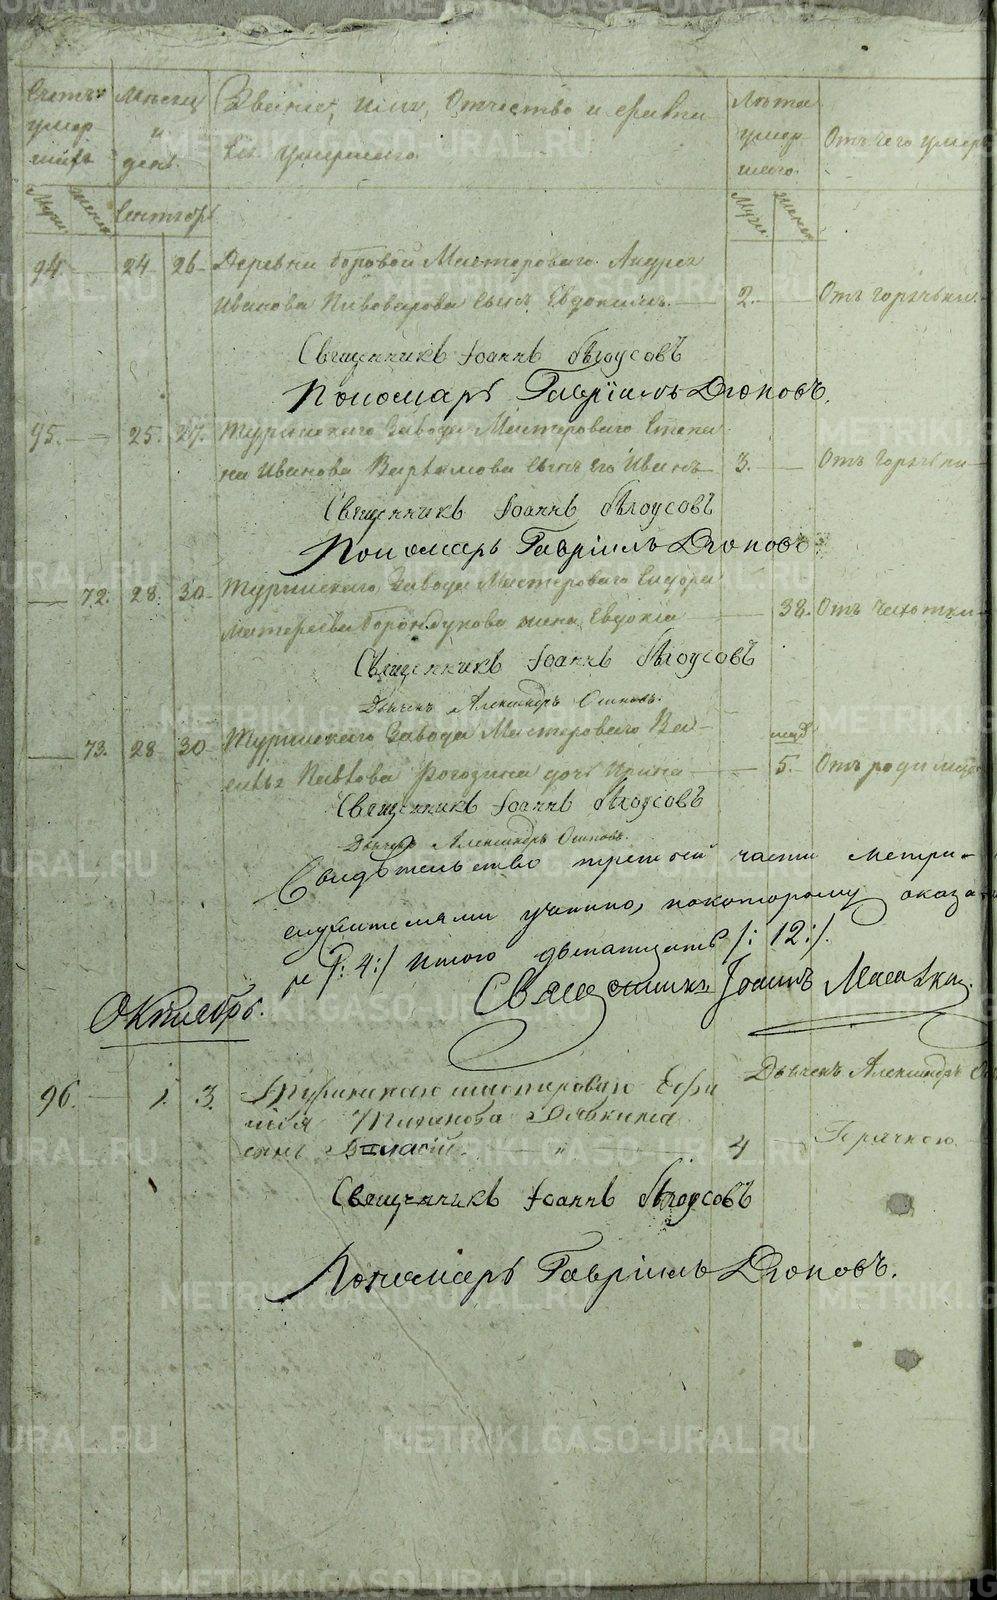 Счетъ умер шихъ
Мѣсяц и день.
Званіе, имя, Отчество и фамили
я умершаго.
Лѣта умер шаго.
Отъ чего умеръ
Муж. Женск.
Сентябрь
Муж. Женск.
94. — 24 26 Деревни Боровой Мастероваго Андрея
Иванова Пивоварова сынъ Евдокимъ. — 2. — Отъ горячьки.
Священникъ Іоаннъ Бѣлоусовъ
Пономарь Гавріилъ Дюковъ.
95. — 25. 27. Турьинскаго Завода Мастероваго Степа
на Иванова Варламова сынъ его Иванъ 3. — Отъ Горячьки
Священникъ Іоаннъ Бѣлоусовъ
Пономарь Гавріилъ Дюковъ
— 72. 28. 30. Турьинскаго Завода Мастероваго
жена Евдокіа — 38. Отъ Чахотки
Священникъ Іоаннъ Бѣлоусовъ
Дьячекъ Александръ Осиповъ.
— 73. 28 30 Турьинскаго Завода Мастероваго Ва-
силья Павлова Рогозина дочь Ирина — 5. Отъ родимца
Священникъ Іоаннъ Бѣлоусовъ
Дьячекъ Александръ Осиповъ.
Свидѣтельство третьей части метри-
служителями учинено, покоторому оказа
/: 4:/ Итого двенатцать /: 12:/.
Священникъ Іоаннъ
Октябрь.
Дьячекъ Александръ
96. — 1. 3. мастероваго
сынъ — 4 — Горячкою
Священникъ Іоаннъ Бѣлоусовъ
Пономарь Гавріилъ Дюковъ.
METRIKI.GASO-URAL.RU